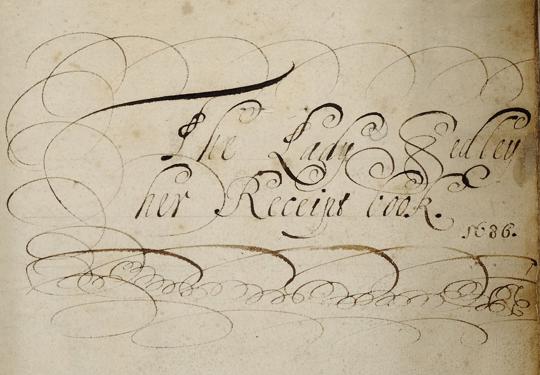 The Lady Sedley
her Receipt book.
1686.